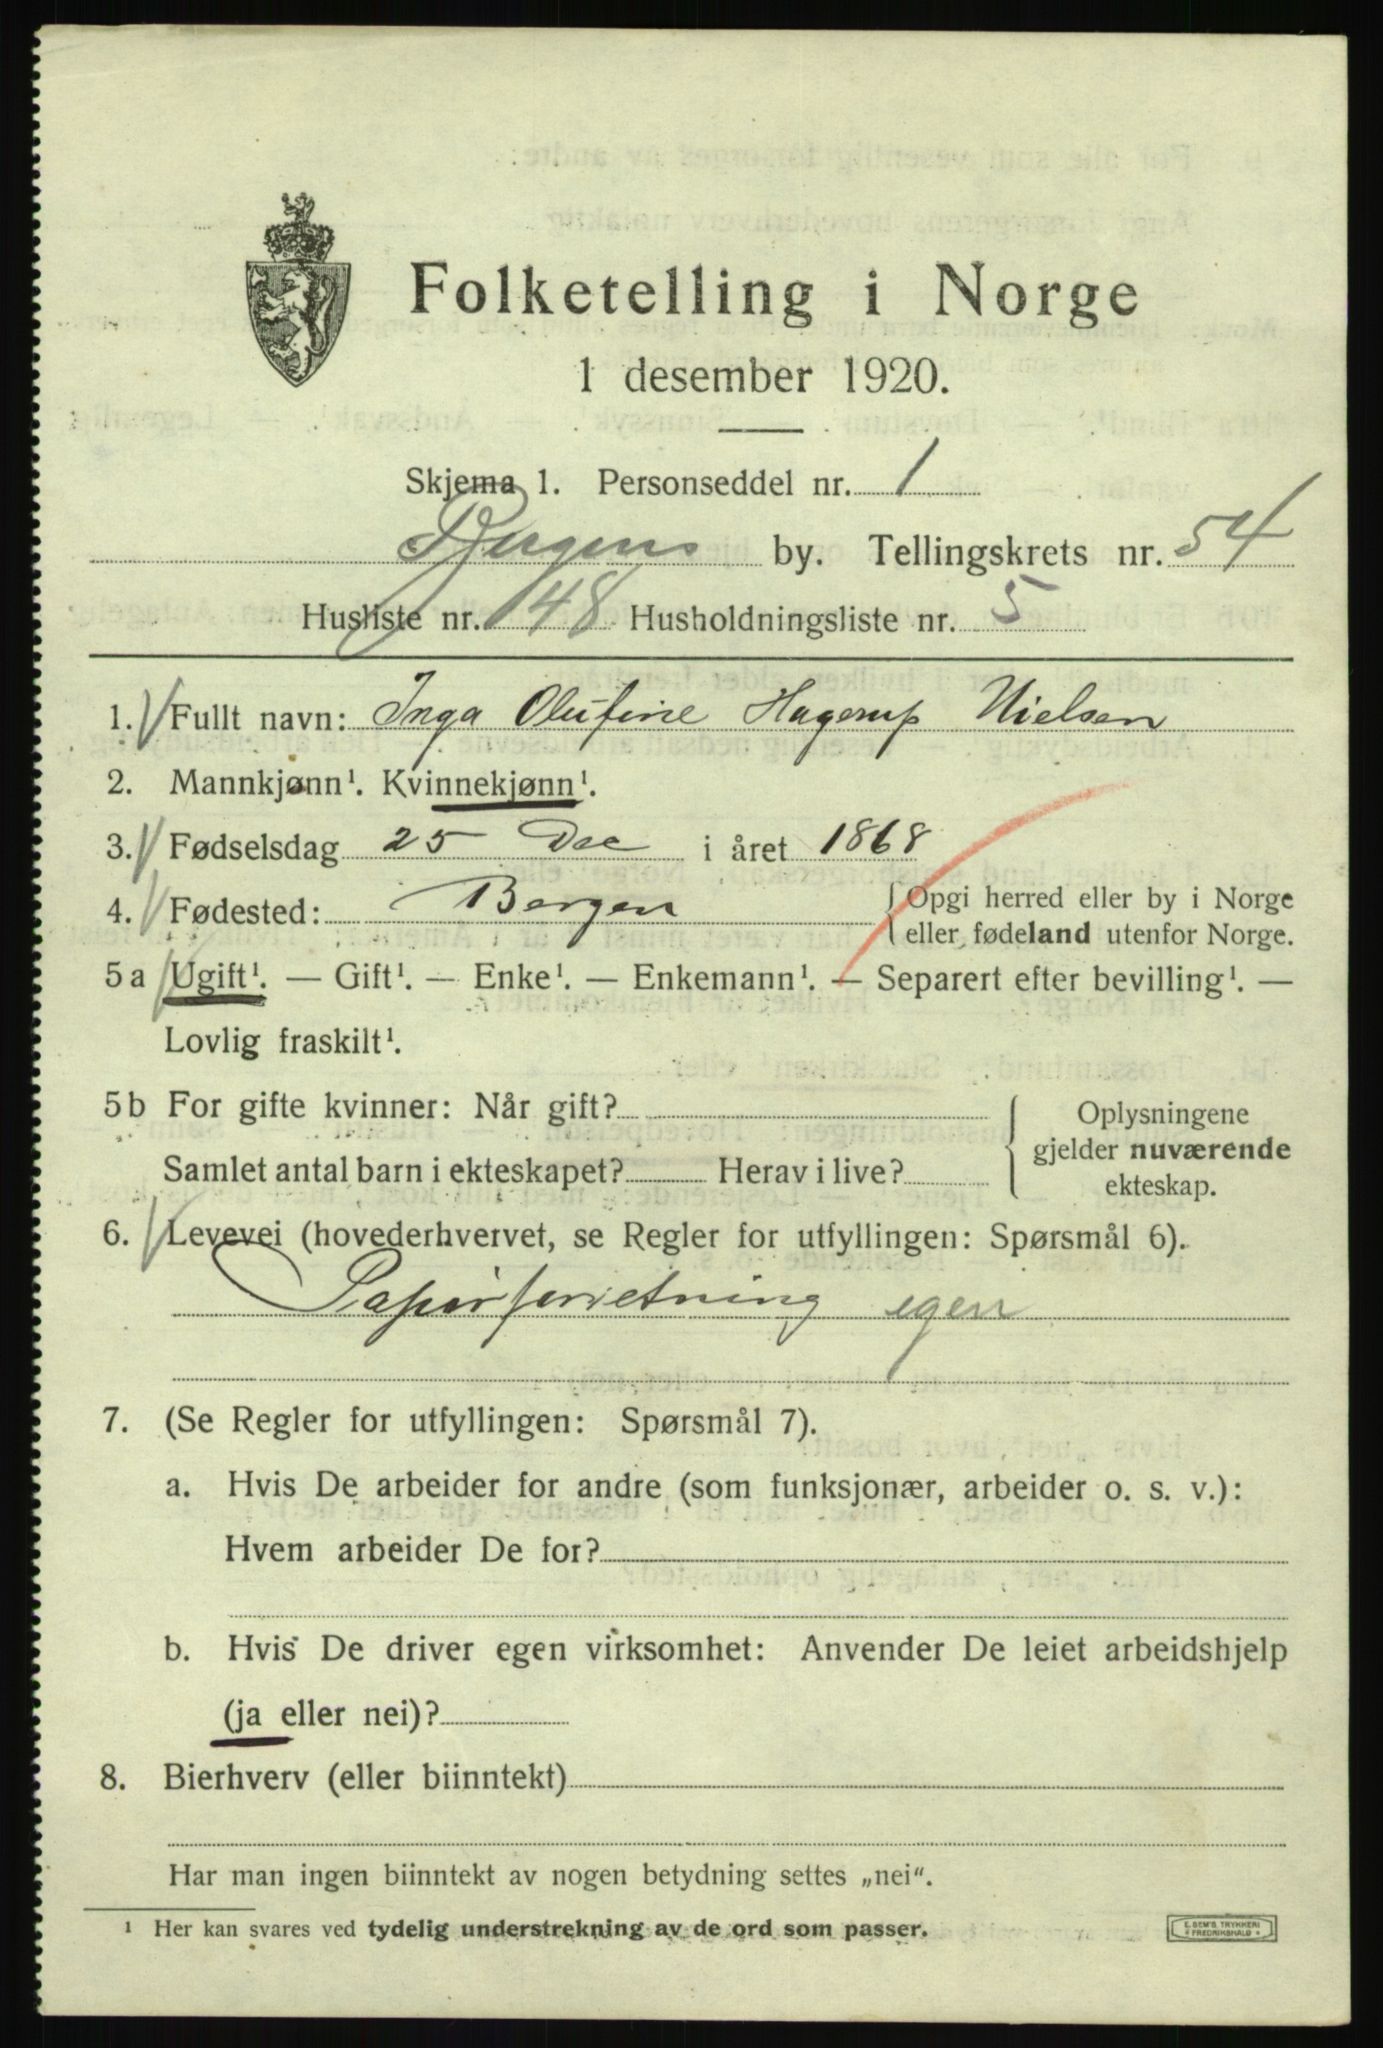 Folketelling i Norge
1 desember 1920.
Skjema 1. Personseddel nr. 1
Bergens by. Tellingskrets nr. 54
Husliste nr. 148 Husholdningsliste nr. 5
1. Fullt navn: Inga Olufine Hagerup Nielsen
2. Mannkjønn¹. Kvinnekjønn¹.
3. Fødselsdag 25 Dec i året 1868
4. Fødested: Bergen { Opgi herred eller by i Norge
eller fødeland utenfor Norge.
5 a Ugift¹. — Gift¹. — Enke¹. — Enkemann¹. — Separert efter bevilling¹. —
Lovlig fraskilt¹.
5 b For gifte kvinner: Når gift?
Samlet antal barn i ekteskapet? Herav i live?
{ Oplysningene
gjelder nuværende
ekteskap.
6. Levevei (hovederhvervet, se Regler for utfyllingen: Spørsmål 6).
Papirforretning egen
7. (Se Regler for utfyllingen: Spørsmål 7).
a. Hvis De arbeider for andre (som funksjonær, arbeider o. s. v.):
Hvem arbeider De for?
b. Hvis De driver egen virksomhet: Anvender De leiet arbeidshjelp
(ja eller nei)?
8. Bierhverv (eller biinntekt)
Har man ingen biinntekt av nogen betydning settes „nei“.
¹ Her kan svares ved tydelig understrekning av de ord som passer.
E. SEM'S TRYKKERI
FREDRIKSHALD